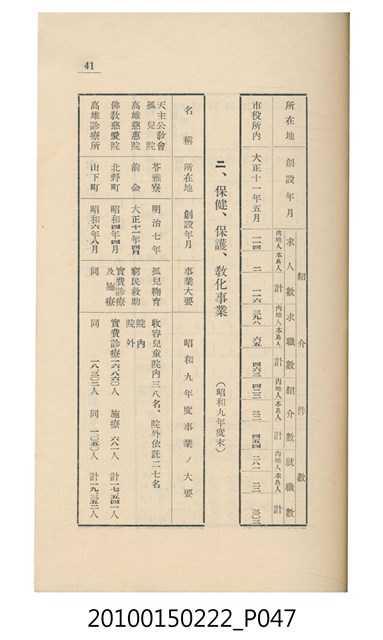 41
所在地 創設年月 紹介件數
求人數 求職數 紹介數 就職數
內地人 本島人 計 內地人 本島人 計 內地人 本島人 計 內地人 本島人 計
市役所內 大正十一年五月 一一四 二 一一六 三九八 六五 四六三 四二二 三二 四五四 二八一 二二 三〇三
二、保健、保護、敎化事業 (昭和九年度末)
名稱 所在地 創設年月 事業大要 昭和九年度事業ノ大要
天主公敎會孤兒院 苓雅寮 明治七年 孤兒鞠育 收容兒童院內三八名、院外依託二七名
高雄慈惠院 前金 大正十二年四月 窮民救助 院內 院外
佛敎慈愛院 北野町 昭和四年四月 實費診療及施療 實費診療一六、八六〇人 施療 六八一人 計一七、五四一人
高雄診療所 山下町 昭和六年八月 同 同 一八、三〇二人 同 一、〇五〇人 計一九、三五二人
20100150222_P047